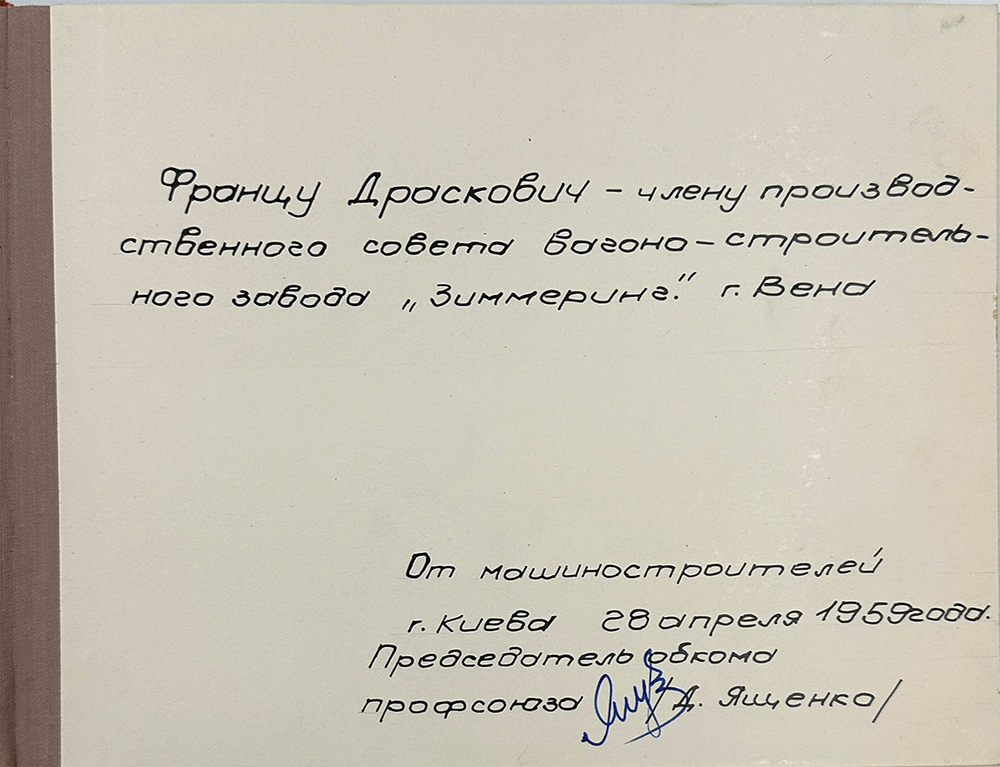 Францу Драскович – члену производ-
ственного совета вагоно – строитель-
ного завода „Зиммеринг." г. Вена
От машиностроителей
г. Киева 28 апреля 1959 года.
Председатель обкома
профсоюза /Д. Ященко/